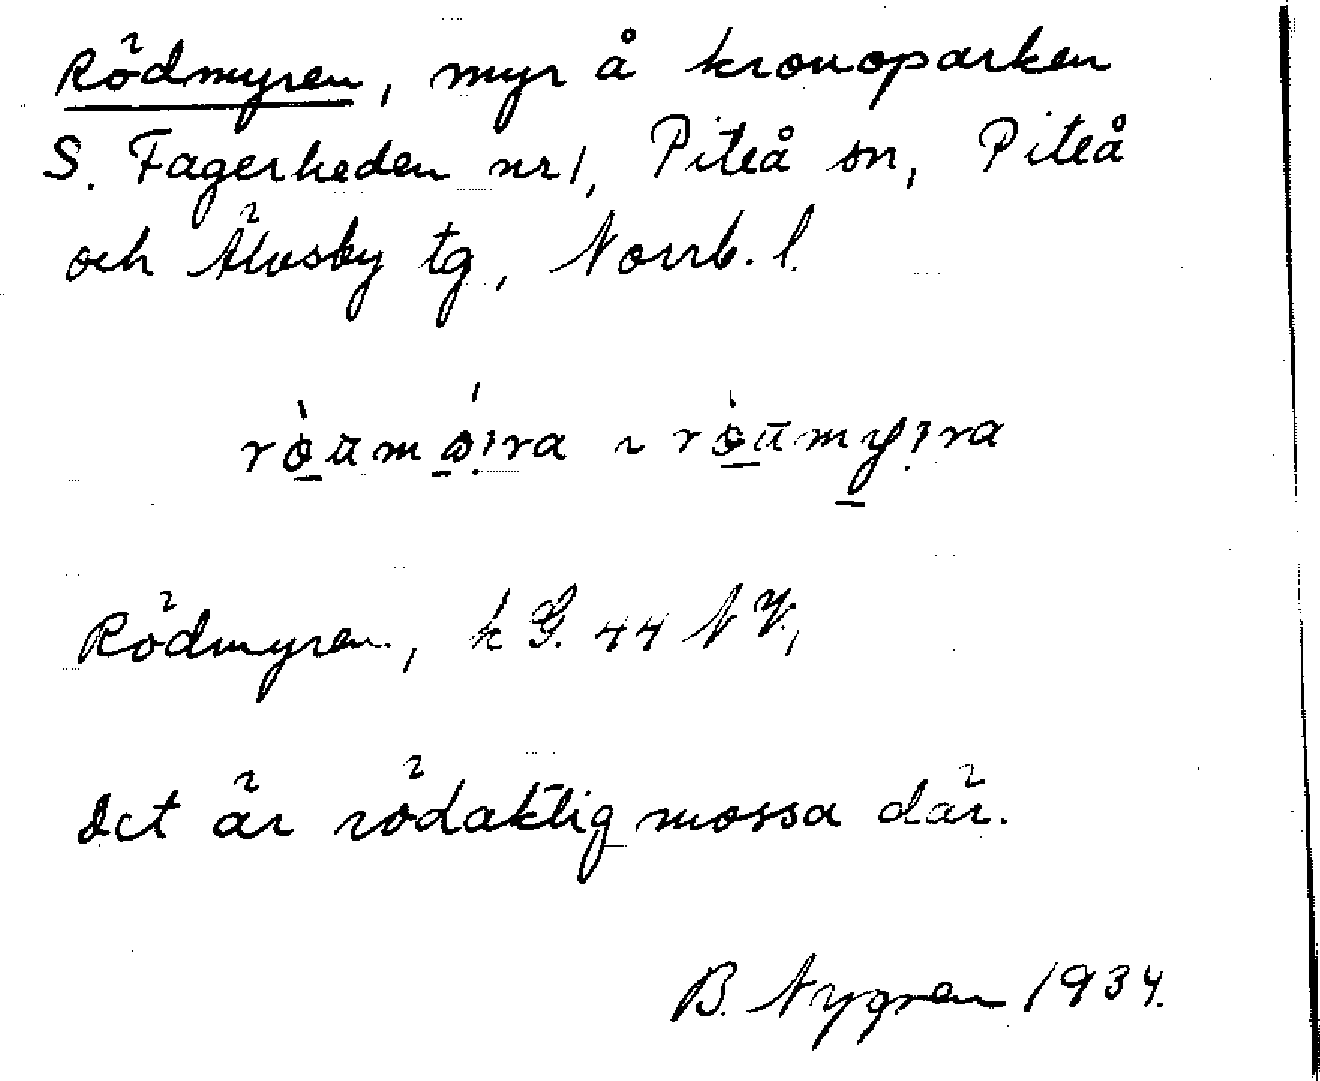 Rödmyren, myr å kronoparken
S. Fagerheden nr 1, Piteå sn, Piteå
och Älvsby tg, Norrb. l.
Rödmyren, k G. 44 NV,
Det är rödaktig mossa där.
B. Nygren 1934.